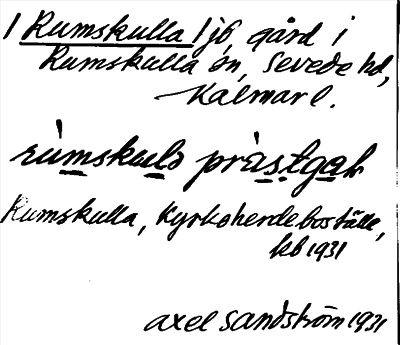 1 Rumskulla 1 jb, gård i
Rumskulla sn, Sevede hd,
Kalmar l.
rùmskulə prä̀stgaḷ
Rumskulla, Kyrkoherdeboställe,
kb 1931
Axel Sandström 1931